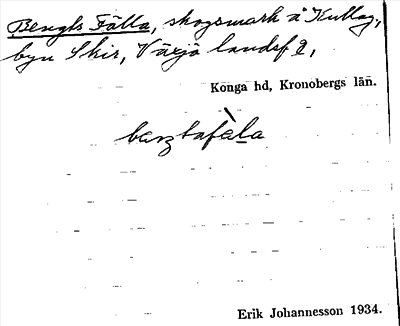 Bengts Fälla, skogsmark å Kullag,
byn Skir, Växjö landsf 2,
Konga hd, Kronobergs län.
Erik Johannesson 1934.